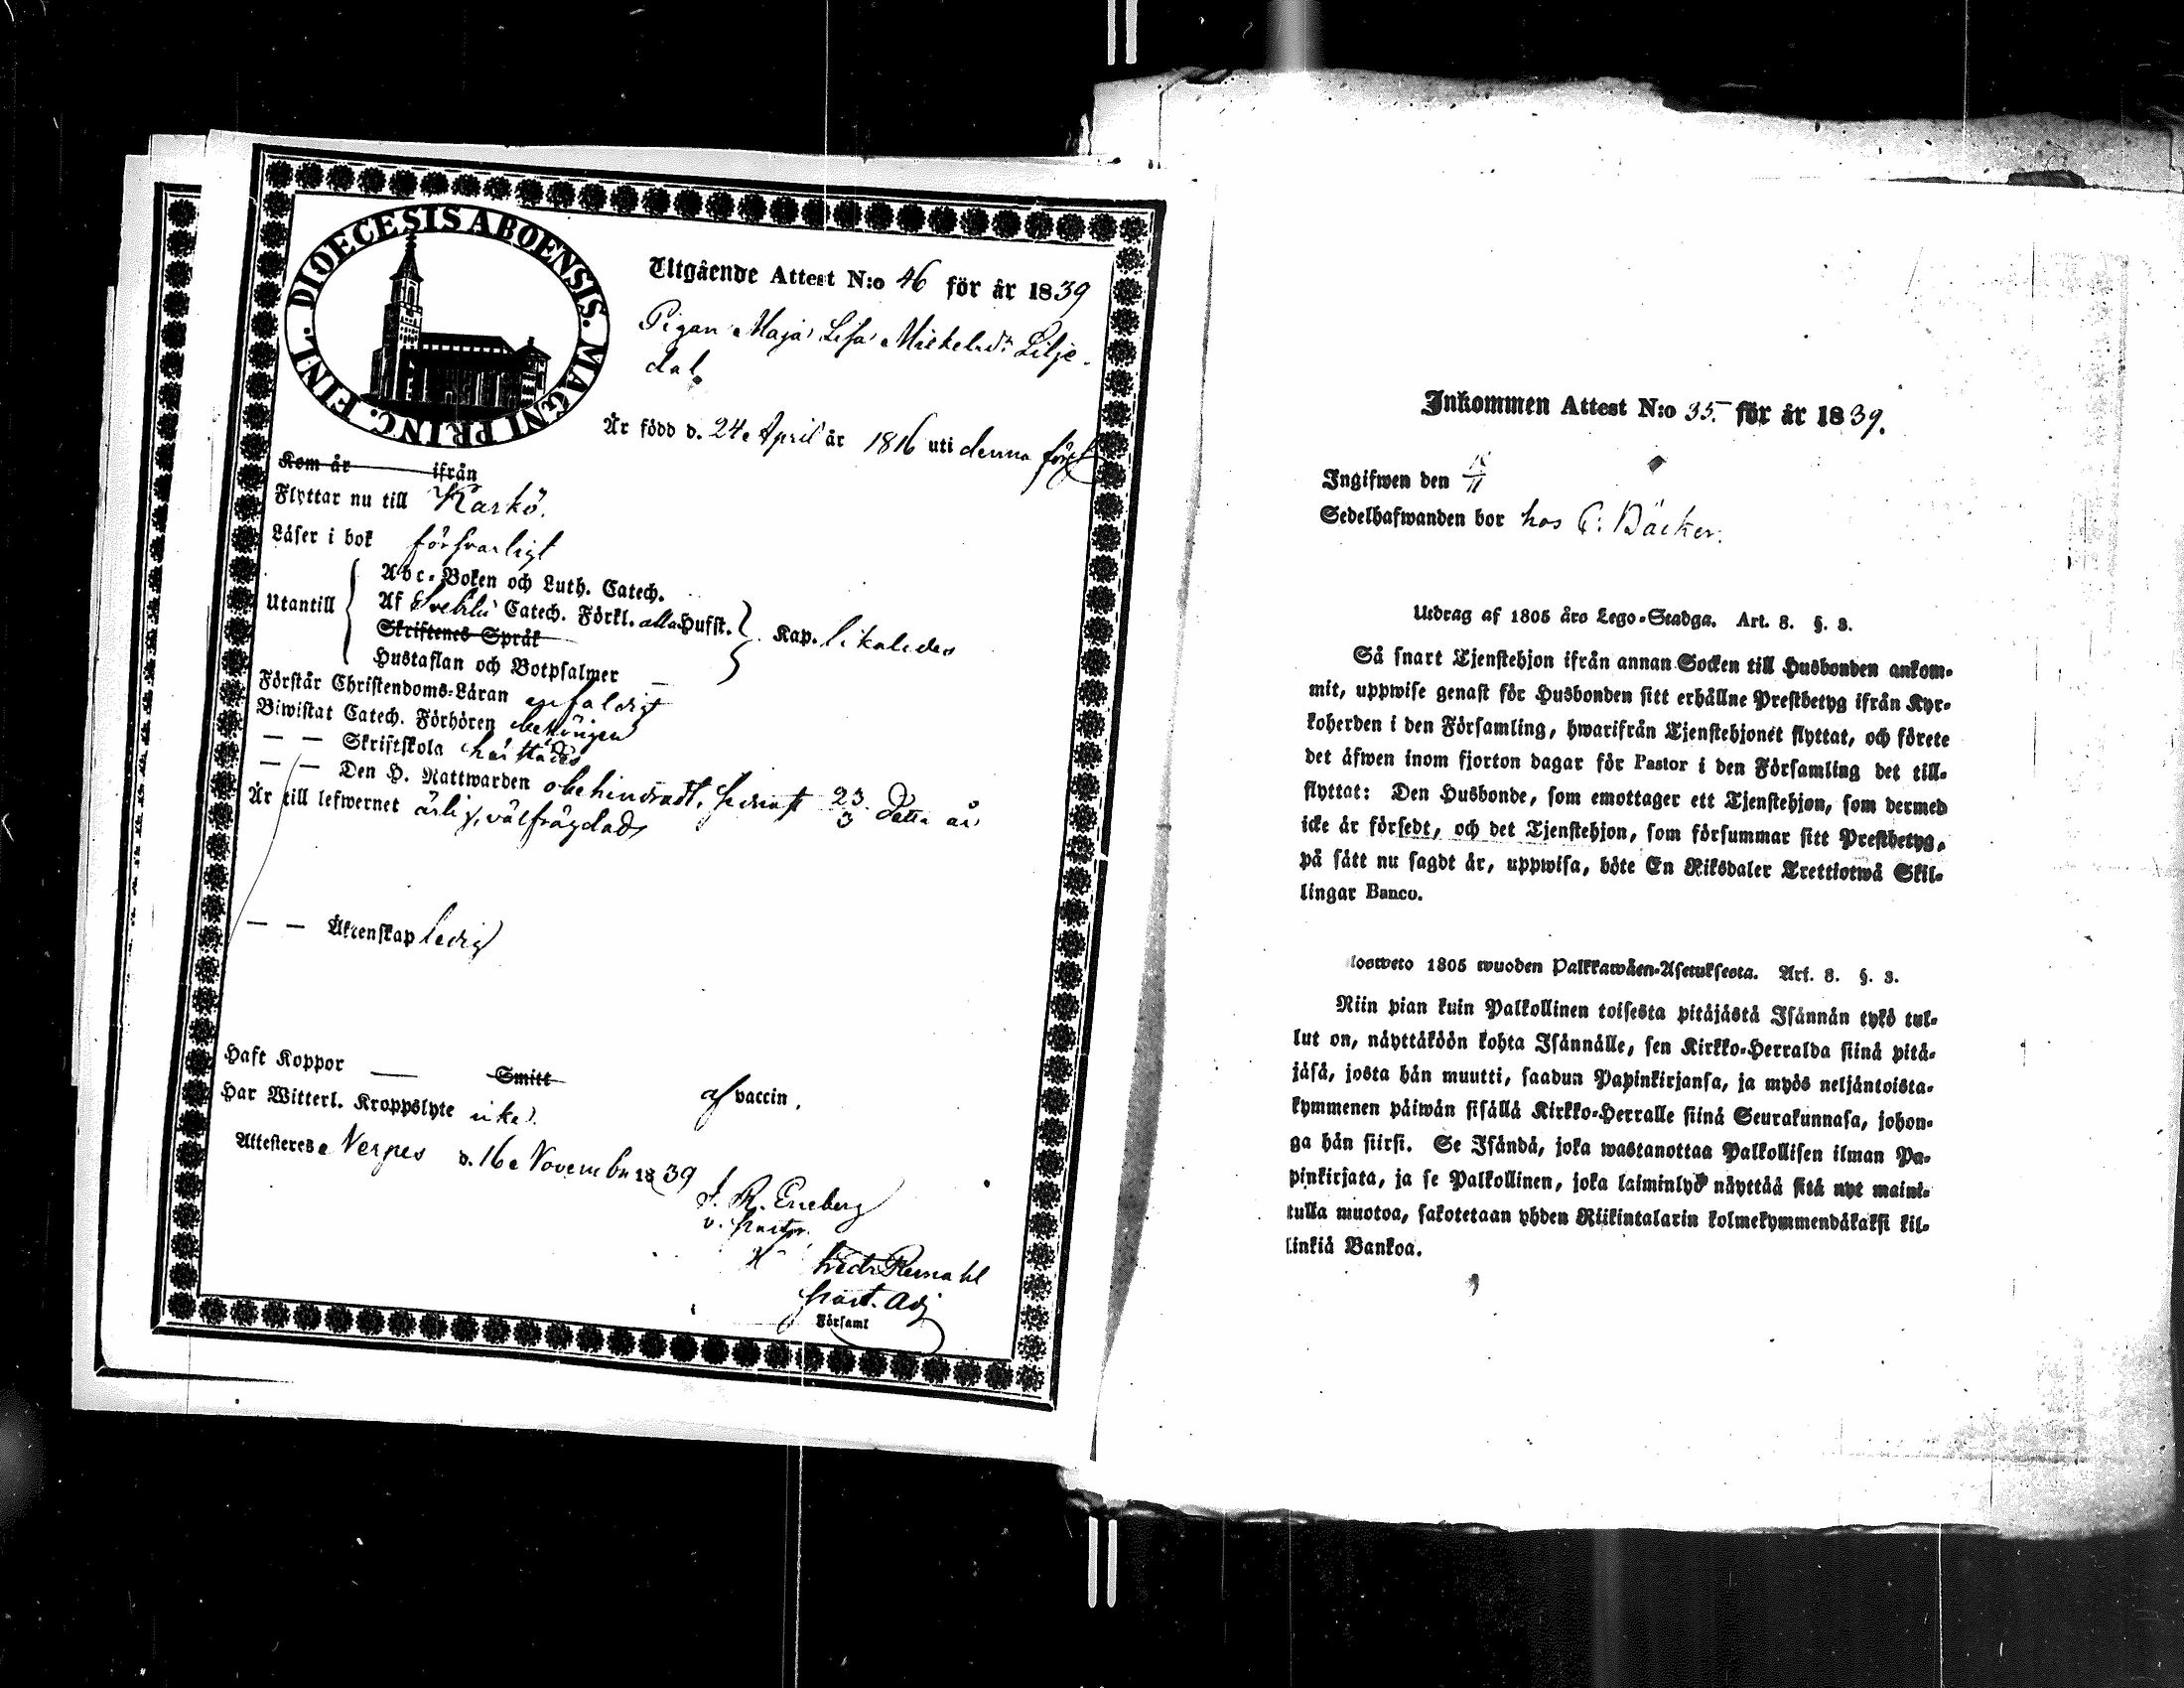 DIOECESIS ABOENSIS. MAGNI PRINC. FINL.
Utgående Attest N:o 46 för år 1839
Pigan Maja Lisa Mickelsdr Lilje-
dal
År född d. 24 April år 1816 uti denna förs.
Kom år ifrån
Flyttar nu till Kaskö.
Läser i bok försvarligt
Utantill
Abc-Boken och Luth. Catech.
Af Svebilii Catech. Förkl. alla Hufst.
Skriftenes Språk
Hustaflan och Botpsalmer
Kap. likaledes
Förstår Christendoms-Läran enfaldigt
Biwistat Catech. Förhören behörigen
— — Skriftskola härstädes
— — Den H. Nattwarden obehindradt, senast 23/3 detta år
Är till lefwernet ärlig, välfrägdad
— — Äktenskap ledig
Haft Koppor — Smitt af vaccin.
Har Witterl. Kroppslyte icke.
Attesteres Nerpes d. 16 November 1839
v. Pastor.
Past. Adj
Församl
Inkommen Attest N:o 35. för år 1839.
Ingifwen den
Sedelhafwanden bor hos C. Bäcker.
Utdrag af 1805 års Lego-Stadga. Art. 8. §. 3.
Så snart Tjenstehjon ifrån annan Socken till Husbonden ankom-
mit, uppwise genast för Husbonden sitt erhållne Prestbetyg ifrån Kyr-
koherden i den Församling, hwarifrån Tjenstehjonet flyttat, och förete
det äfwen inom fjorton dagar för Pastor i den Församling det till-
flyttat: Den Husbonde, som emottager ett Tjenstehjon, som dermed
icke är försedt, och det Tjenstehjon, som försummar sitt Prestbetyg,
på sätt nu sagdt är, uppwisa, böte En Riksdaler Trettiotwå Skil-
lingar Banco.
losweto 1805 wuoden Palkkawäen-Asetuksesta. Art. 8. §. 3.
Niin pian kuin Palkollinen toisesta pitäjästä Isännän tykö tul-
lut on, näyttäköön kohta Isännälle, sen Kirkko-Herralda siinä pitä-
jäsä, josta hän muutti, saadun Papinkirjansa, ja myös neljäntoista-
kymmenen päiwän sisällä Kirkko-Herralle siinä Seurakunnasa, johon-
ga hän siirsi. Se Isändä, joka wastanottaa Palkollisen ilman Pa-
pinkirjata, ja se Palkollinen, joka laiminlyö näyttää sitä nyt maini-
tulla muotoa, sakotetaan yhden Riikintalarin kolmekymmendäkaksi kil-
linkiä Bankoa.